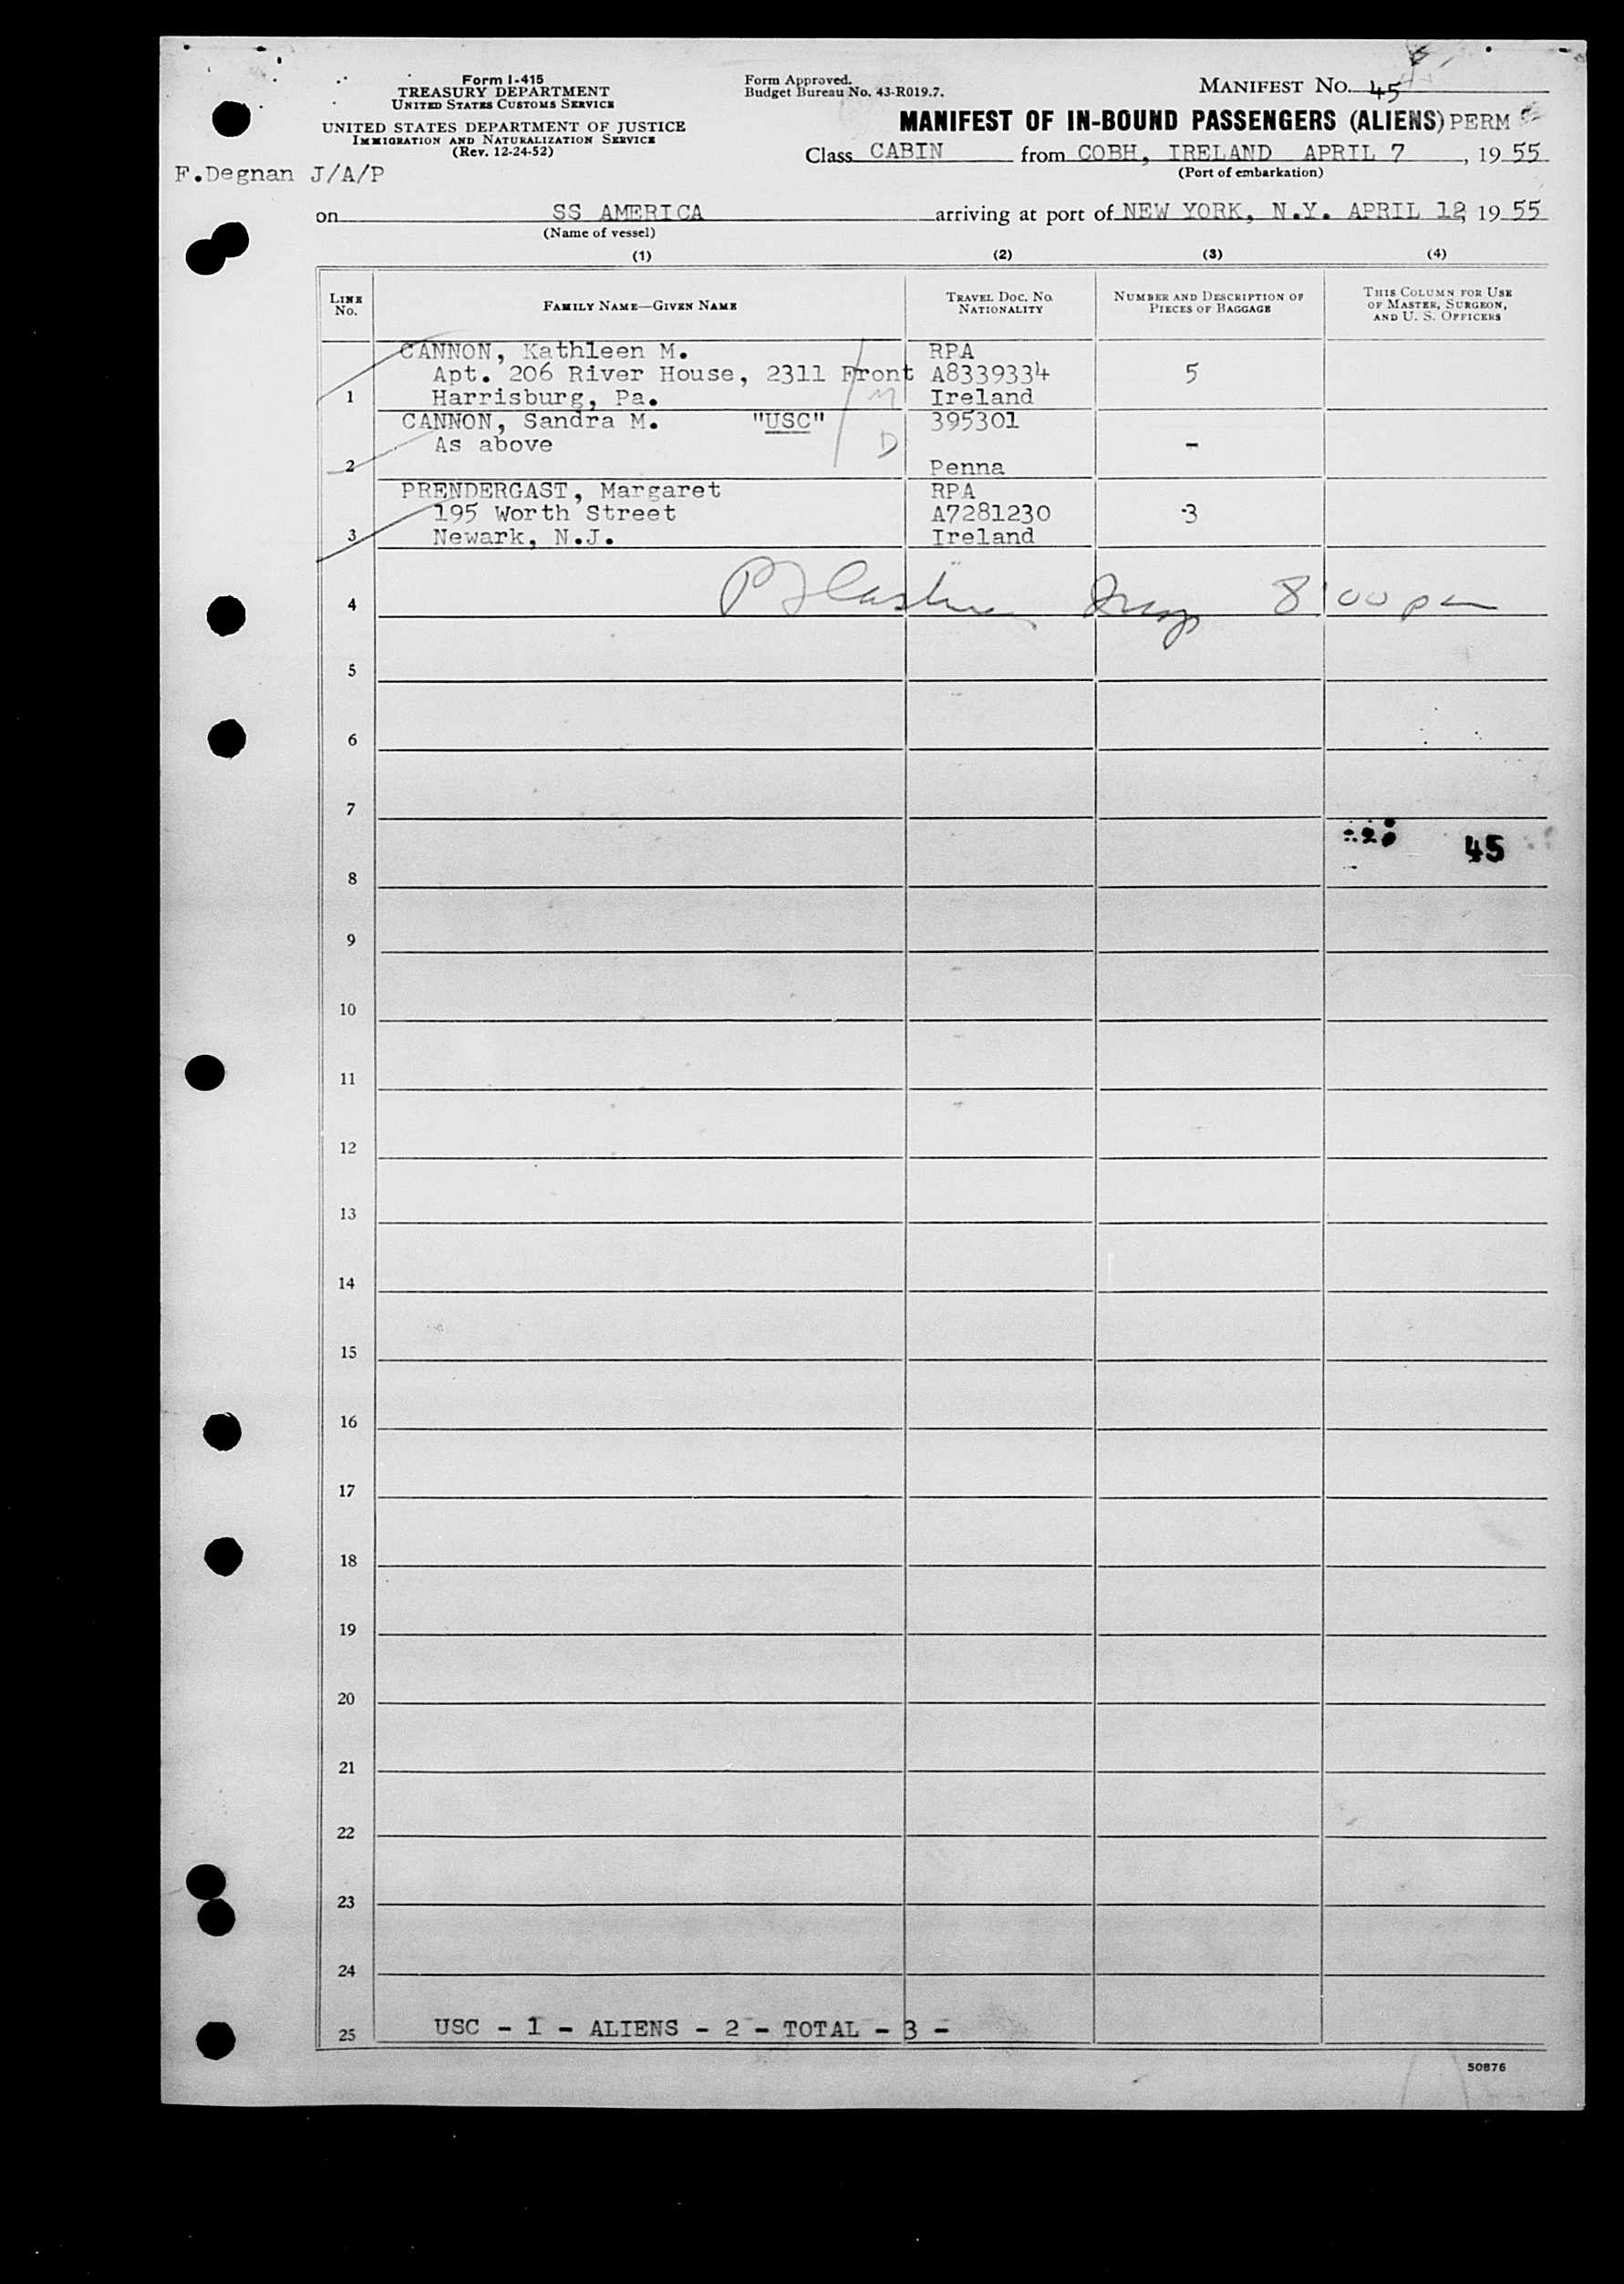 Form I-415
TREASURY DEPARTMENT
UNITED STATES CUSTOMS SERVICE
UNITED STATES DEPARTMENT OF JUSTICE
IMMIGRATION AND NATURALIZATION SERVICE
(Rev. 12-24-52)
Form Approved.
Budget Bureau No. 43-R019.7.
MANIFEST No. 45
MANIFEST OF IN-BOUND PASSENGERS (ALIENS) PERM
Class CABIN from COBH, IRELAND APRIL 7, 19 55
(Port of embarkation)
F.Degnan J/A/P
on SS AMERICA arriving at port of NEW YORK, N.Y. APRIL 12, 19 55
(Name of vessel)
(1) (2) (3) (4)
LINE No. FAMILY NAME—GIVEN NAME TRAVEL DOC. NO. NATIONALITY NUMBER AND DESCRIPTION OF PIECES OF BAGGAGE THIS COLUMN FOR USE OF MASTER, SURGEON, AND U. S. OFFICERS
CANNON, Kathleen M. RPA
Apt. 206 River House, 2311 Front A8339334 5
1 Harrisburg, Pa. M Ireland
CANNON, Sandra M. "USC" 395301
As above D -
2 Penna
PRENDERGAST, Margaret RPA
195 Worth Street A7281230 3
3 Newark, N.J. Ireland
4 8:00 pm
5
6
7
45
8
9
10
11
12
13
14
15
16
17
18
19
20
21
22
23
24
25 USC - 1 - ALIENS - 2 - TOTAL - 3 -
50876